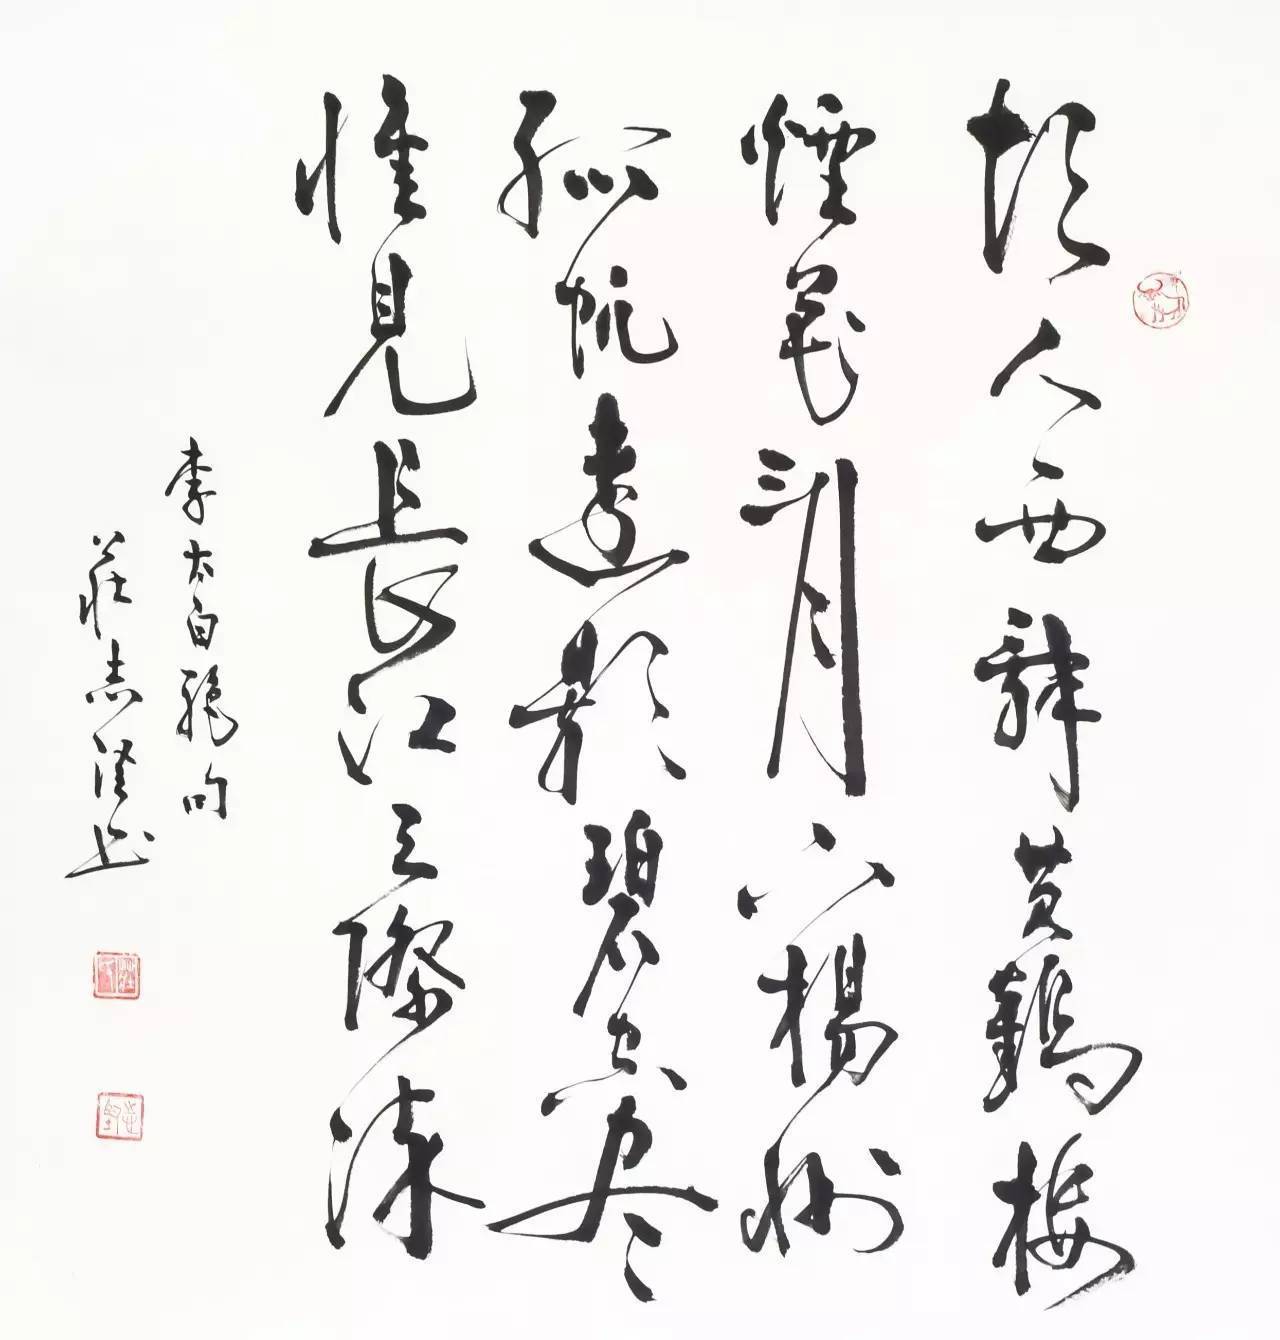 故人西辭黄鶴樓
煙花三月下楊州
孤帆遠影碧空尽
惟見長江天際流
李太白絶句
莊志书